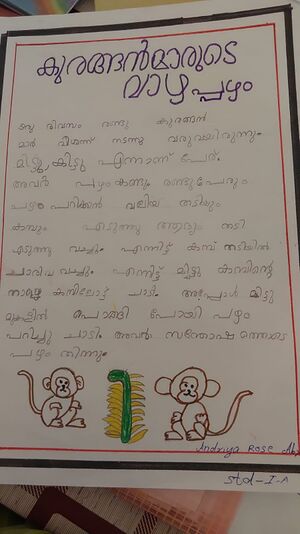 കുരങ്ങൻമാരുടെ
വാഴപ്പഴം
ഒരു ദിവസം രണ്ടു കുരങ്ങൻ
മാർ വിശന്ന് നടന്നു വരുകയായിരുന്നു.
മിട്ടു, കിട്ടു എന്നാണ് പേര്.
അവർ പഴം കണ്ടു. രണ്ടുപേരും
പഴം പറിക്കാൻ വലിയ തടിയും
കമ്പും എടുത്തു ആദ്യം തടി
എടുത്തു വച്ചു. എന്നിട്ട് കമ്പ് തടിയിൽ
ചാരിവച്ചു. എന്നിട്ട് മിട്ടു കമ്പിന്റെ
താഴെ കിട്ടു ചാടി. അപ്പോൾ മിട്ടു
മുകളിൽ പൊങ്ങി പോയി പഴം
പറിച്ചു ചാടി. അവർ സന്തോഷത്തോടെ
പഴം തിന്നു.
Andriya Rose
std-I-A